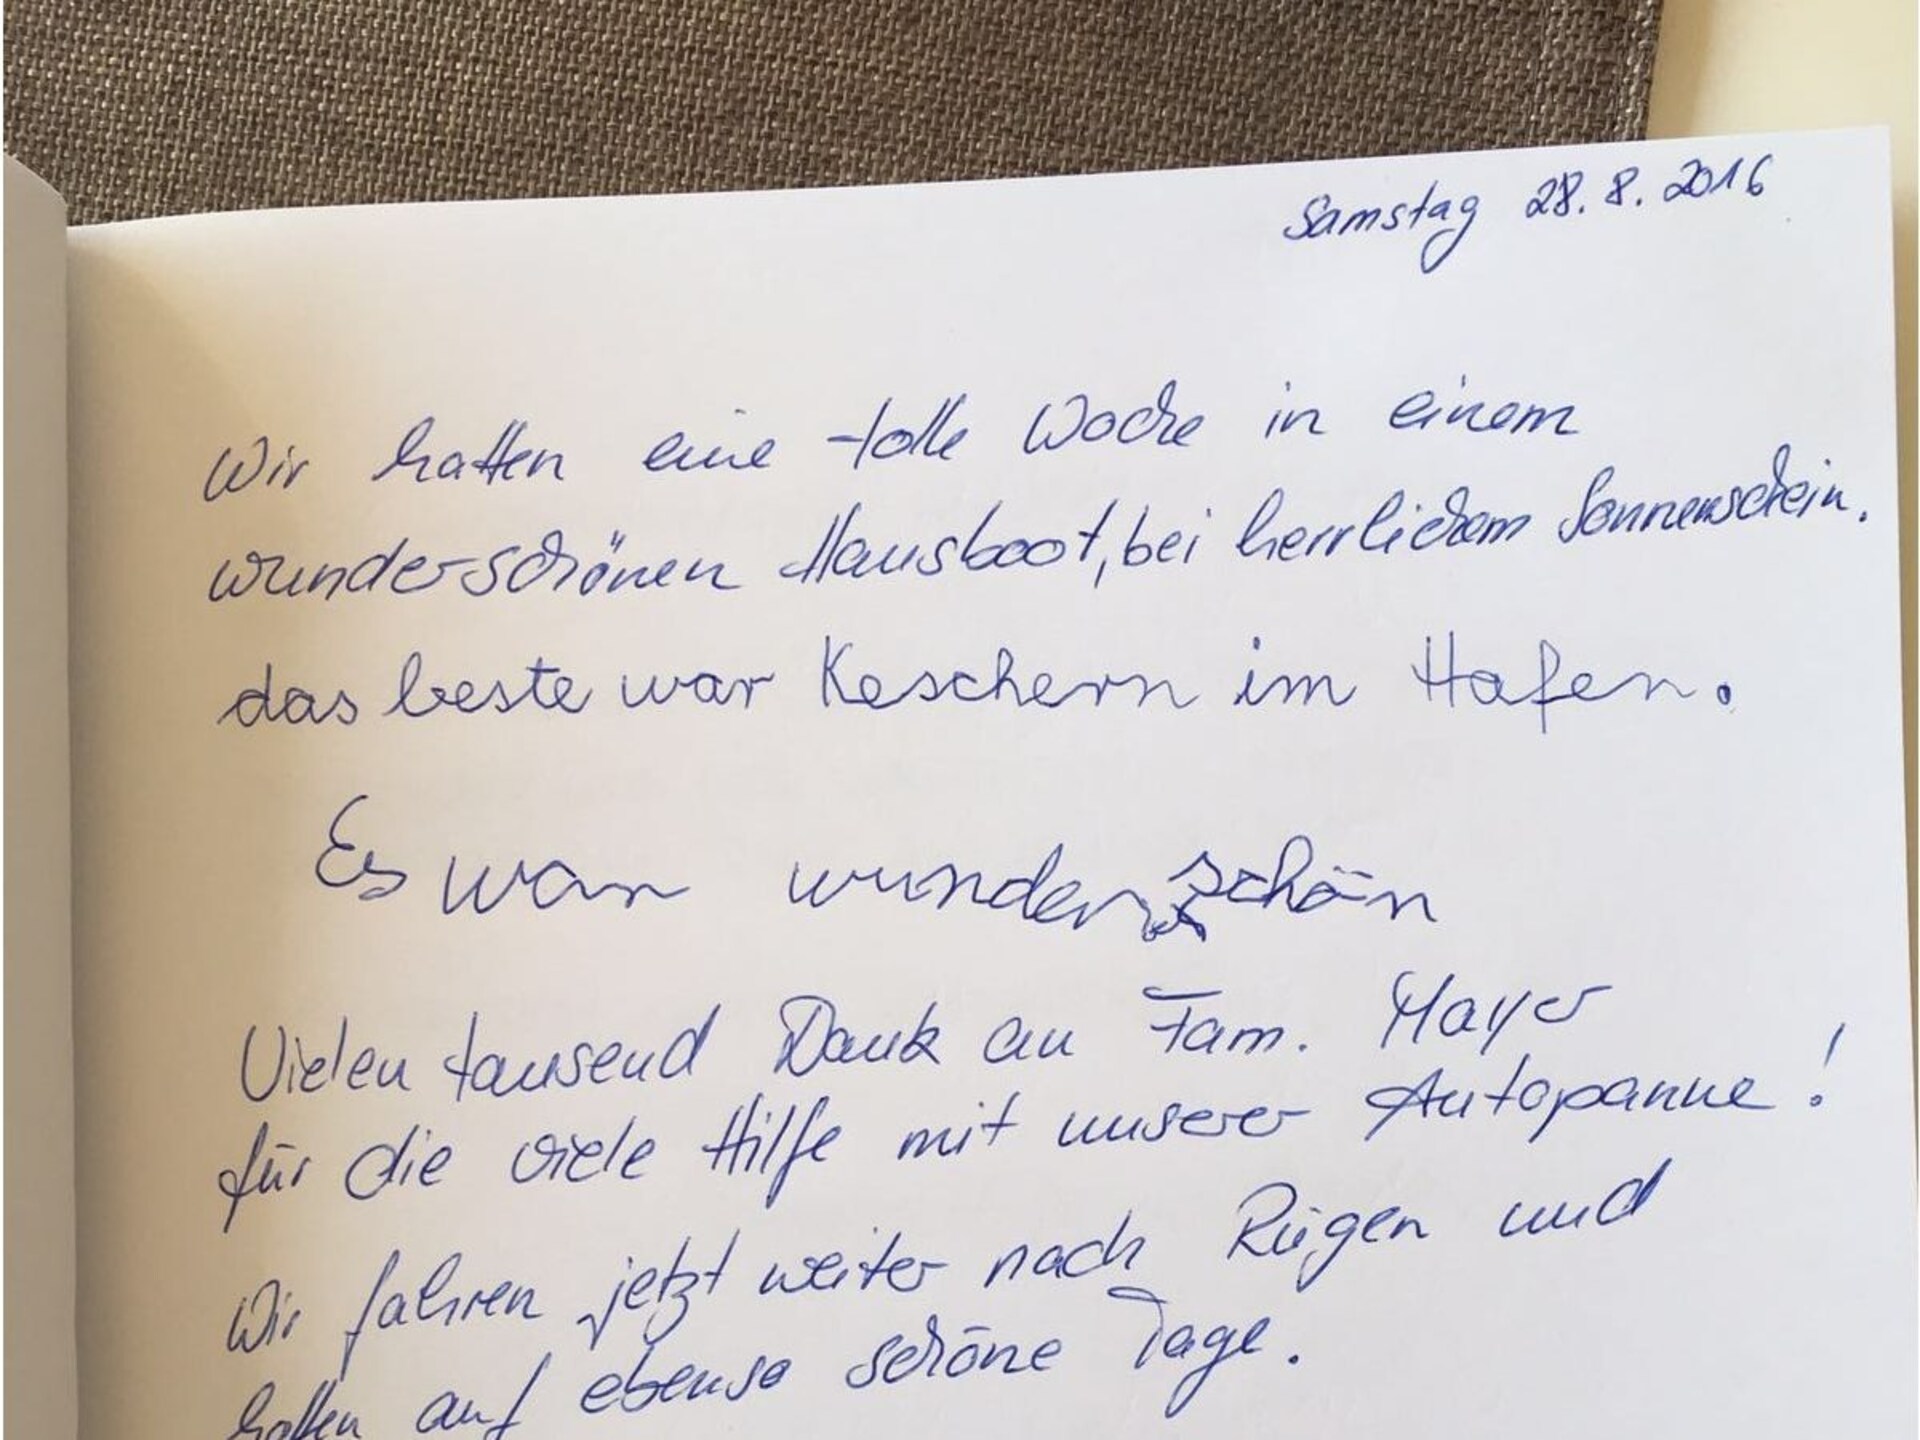 Samstag 28.8.2016
Wir hatten eine tolle Woche in einem
wunderschönen Hausboot, bei herrlichem Sonnenschein.
das beste war Keschern im Hafen.
Es war wunderschön
Vielen tausend Dank an Fam. Mayer
für die viele Hilfe mit unserer Autopanne!
Wir fahren jetzt weiter nach Rügen und
hoffen auf ebenso schöne Tage.